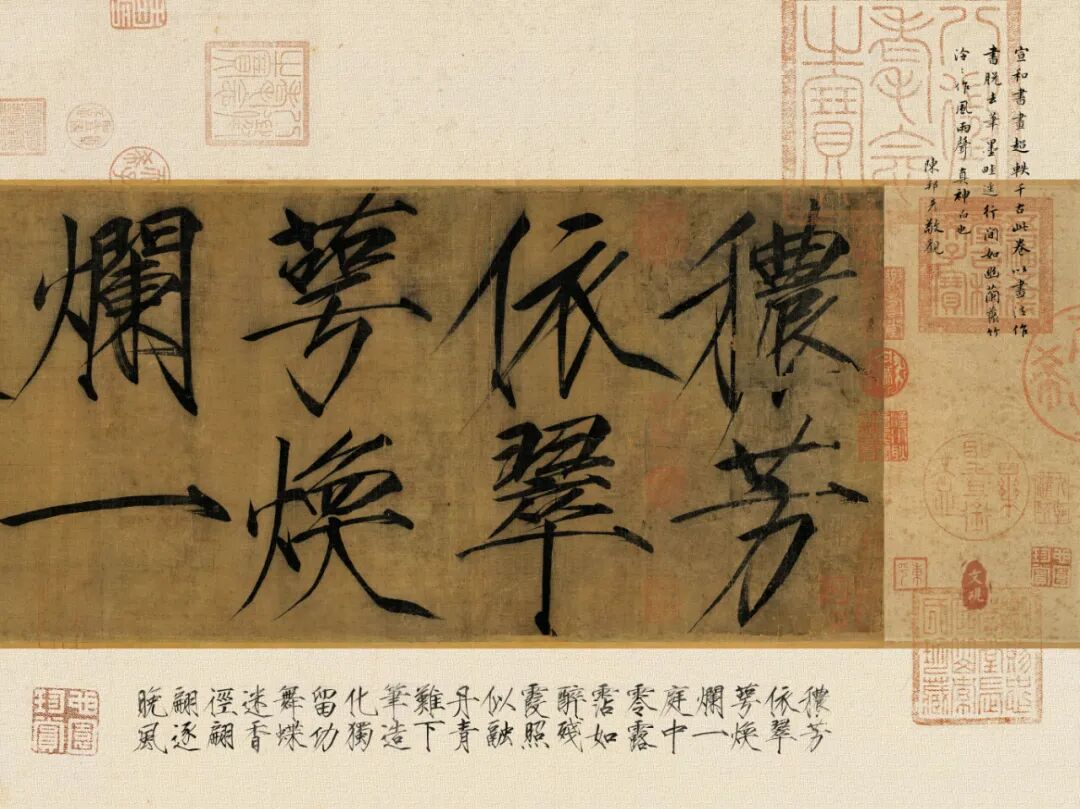 宣和書畫超軼千古此卷以畫法作
書脫去筆墨畦逕行間如幽蘭叢竹
泠泠作風雨聲真神品也
陳邦彥敬觀
穠芳
依翠
萼煥
爛一
穠芳
依翠
萼煥
爛一
庭中
零露
霑如
醉殘
霞照
似融
丹青
難下
筆造
化獨
留功
舞蝶
迷香
徑翩
翩逐
晚風